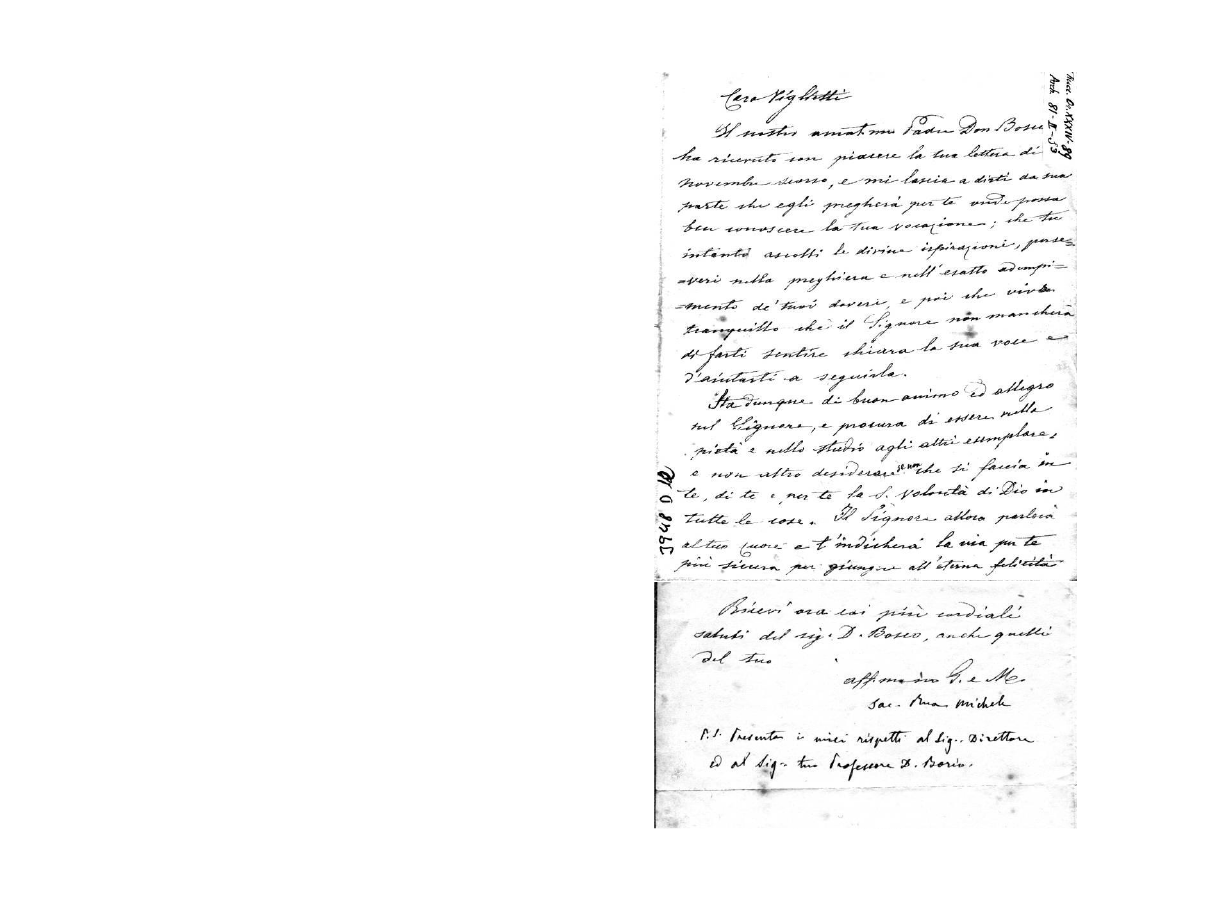 Caro Viglietti
Il nostro amat.mo Padre Don Bosco
ha ricevuto con piacere la tua lettera di
novembre scorso, e mi lascia a dirti da sua
parte che egli pregherà per te onde possa
ben conoscere la tua vocazione; che tu
intanto ascolti le divine ispirazioni, perse=
=veri nella preghiera e nell'esatto adempi=
=mento de' tuoi doveri, e poi che viva
tranquillo chè il Signore non mancherà
di farti sentire chiara la sua voce e
d'aiutarti a seguirla.
Sta dunque di buon animo ed allegro
nel Signore, e procura di essere nella
pietà e nello studio agli altri esemplare,
e non altro desiderare se non che si faccia in
te, di te e per te la S. Volontà di Dio in
tutte le cose. Il Signore allora parlerà
al tuo cuore e t'indicherà la via per te
più sicura per giungere all'eterna felicità
Ricevi ora coi più cordiali
saluti del sig. D. Bosco, anche quelli
del tuo
aff.mo in G. e M.
Sac. Rua Michele
P.S. Presenta i miei rispetti al Sig. Direttore
ed al Sig. tuo Professore D. Borio.
3948 D
Arch 81-II-53